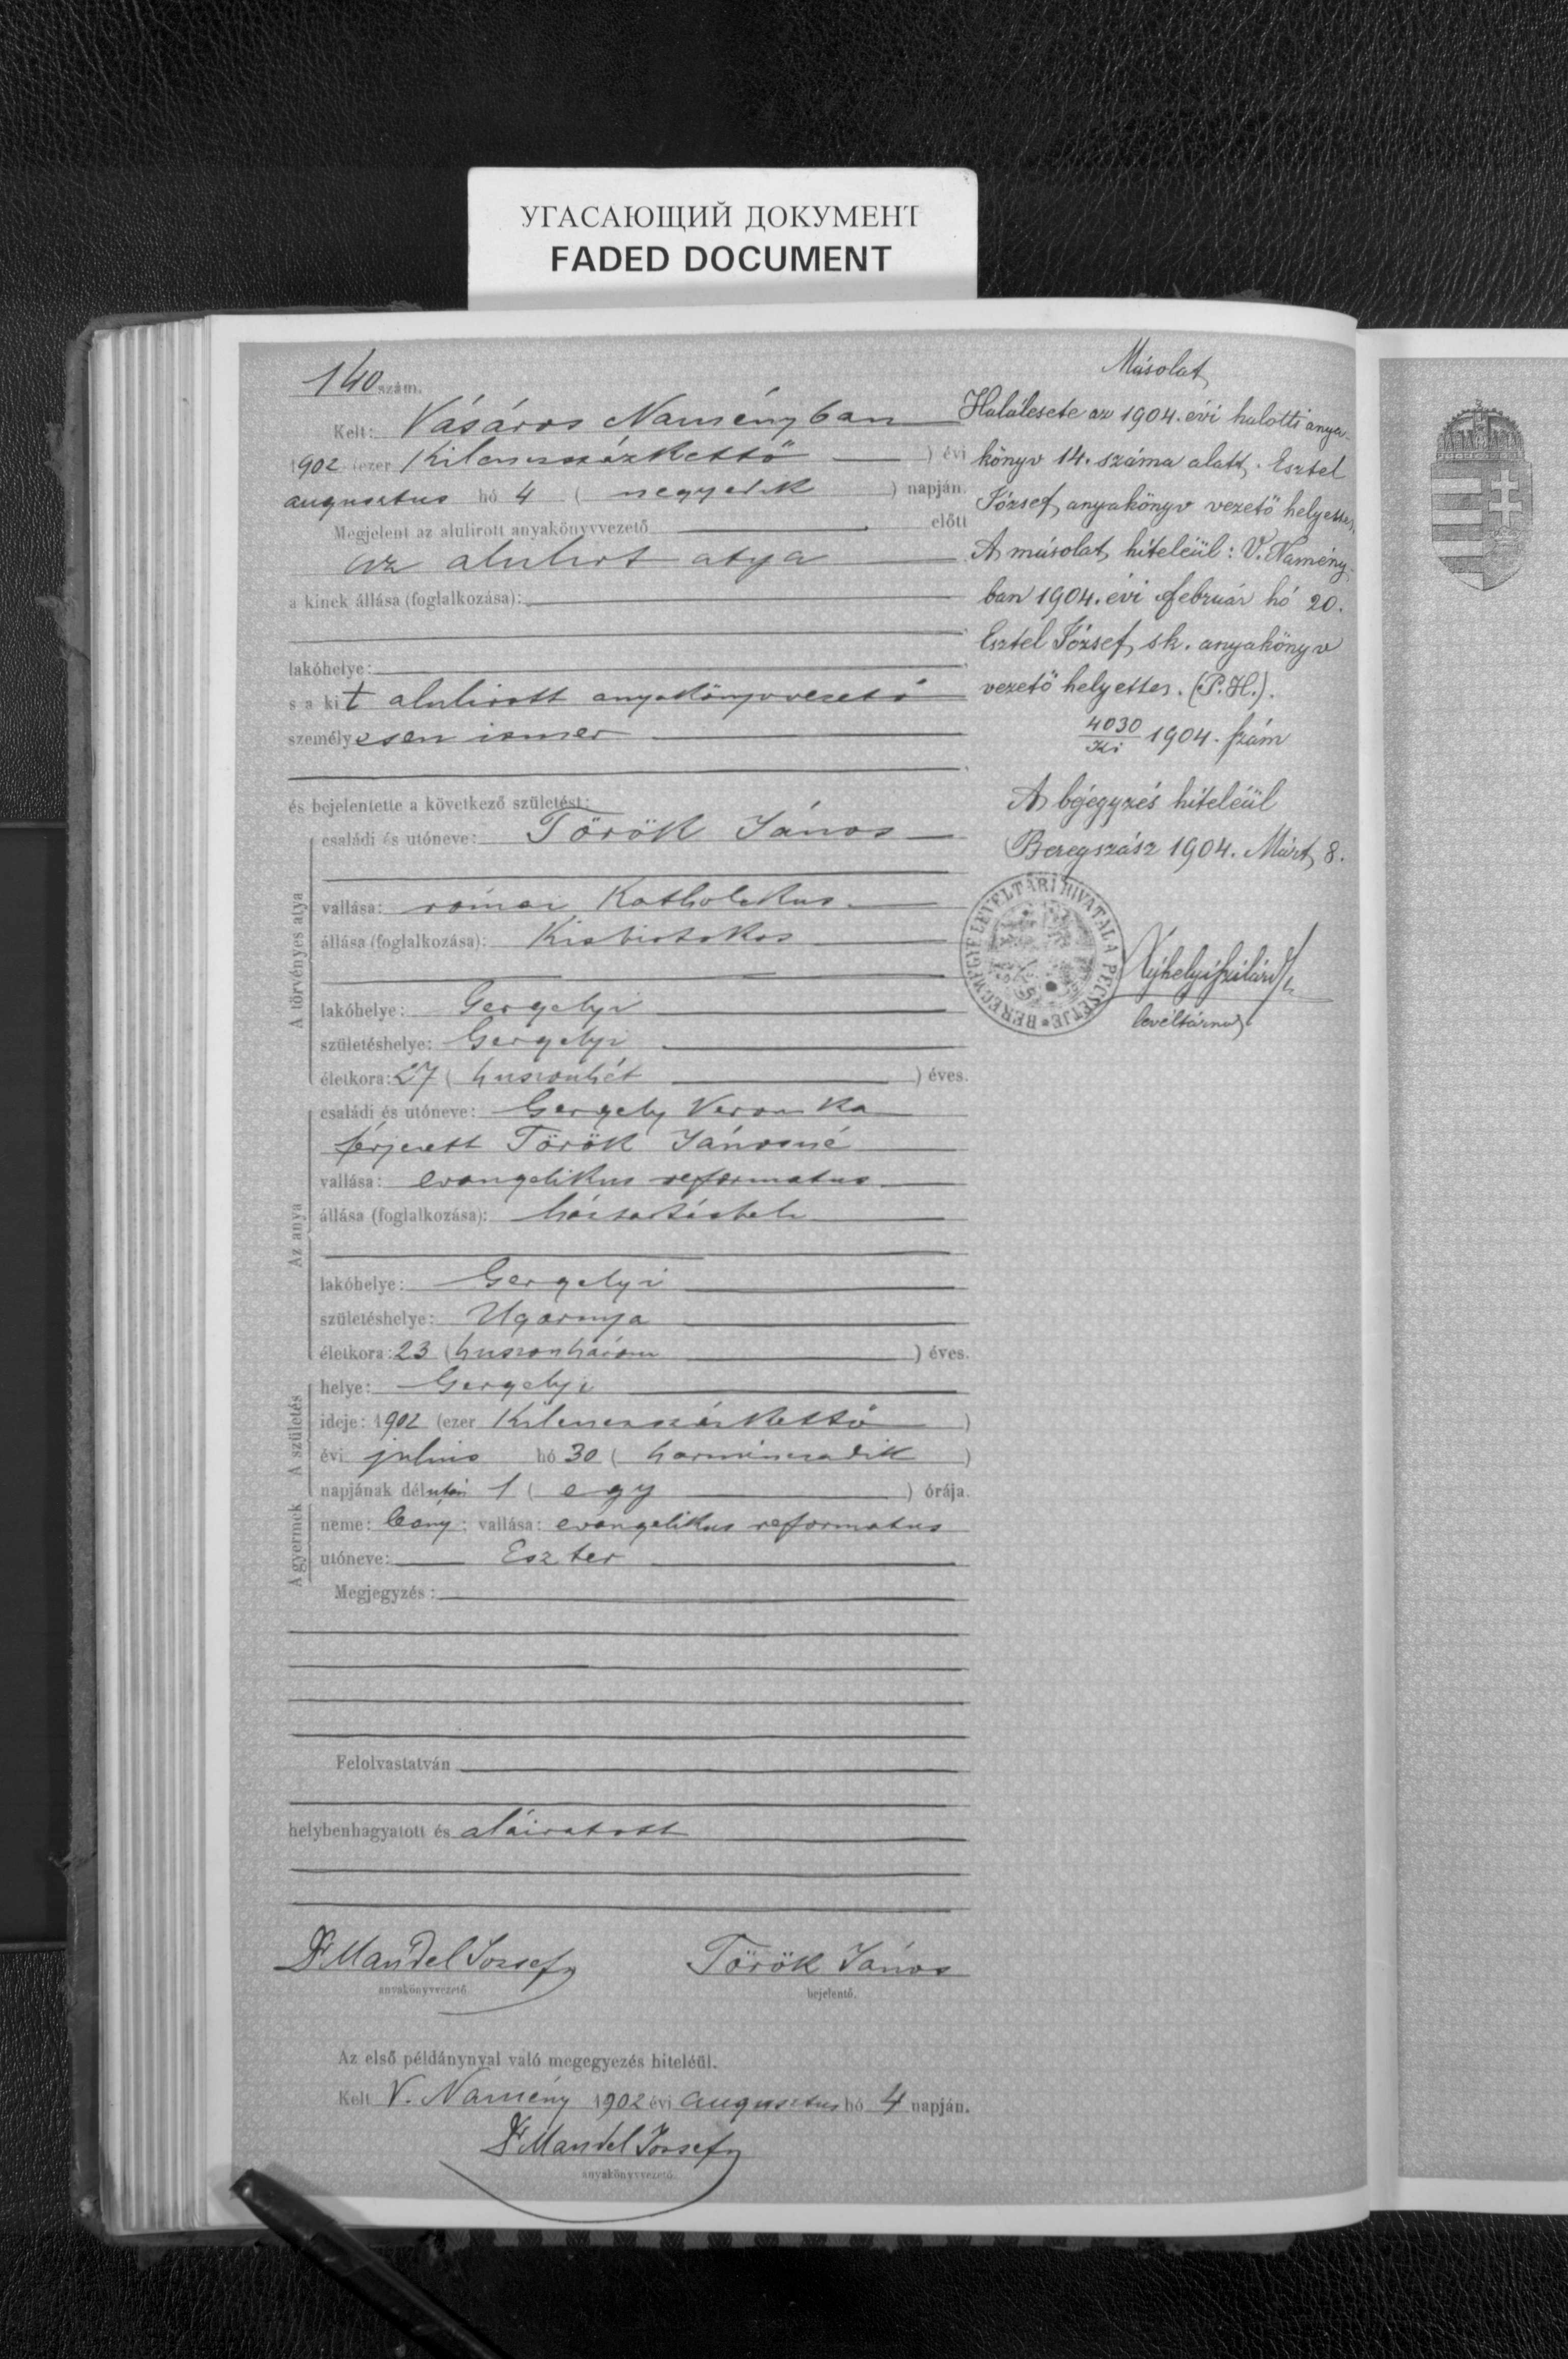 УГАСАЮЩИЙ ДОКУМЕНТ
FADED DOCUMENT
140 szám.
Kelt: Vásáros Naményban
1902 (ezer Kilenczszázkettő ) évi
augusztus hó 4 ( negyedik ) napján.
Megjelent az alulirott anyakönyvvezető előtt
az alulirt atya
a kinek állása (foglalkozása):
lakóhelye:
s a kit alulirott anyakönyvvezető
személyesen ismer
és bejelentette a következő születést:
A törvényes atya
családi és utóneve: Török János
vallása: római Katholikus
állása (foglalkozása): Kisbirtokos
lakóhelye: Gergelyi
születéshelye: Gergelyi
életkora: 27 ( huszonhét ) éves.
Az anya
családi és utóneve: Gergely Veronika
férjezett Török Jánosné
vallása: evangelikus reformatus
állása (foglalkozása): háztartásbeli
lakóhelye: Gergelyi
születéshelye: Ugornya
életkora: 23 ( huszonhárom ) éves.
A születés
helye: Gergelyi
ideje: 1902 (ezer Kilenczszázkettő )
évi julius hó 30 ( harminczadik )
napjának délután 1 ( egy ) órája.
A gyermek
neme: leány; vallása: evangelikus reformatus
utóneve: Eszter
Megjegyzés:
Felolvastatván
helybenhagyatott és aláiratott
Dr Mandel József Török János
anyakönyvvezető bejelentő.
Az első példánynyal való megegyezés hiteléül.
Kelt V. Namény 1902 évi augusztus hó 4 napján.
Dr Mandel József
anyakönyvvezető.
Másolat
Halálesete az 1904. évi halotti anya-
könyv 14. száma alatt. Esztel
József, anyakönyv vezető helyettes.
A másolat hiteléül: V. Namény
ban 1904. évi február hó 20.
Esztel József, sk. anyakönyv
vezető helyettes. (P.H.).
4030/Ki 1904. szám
A bejegyzés hiteléül
Beregszász 1904. Márt, 8.
BEREGMEGYE LEVÉLTÁRI HIVATALA PECSÉTJE
Ujhelyi Szilárd
levéltárnok